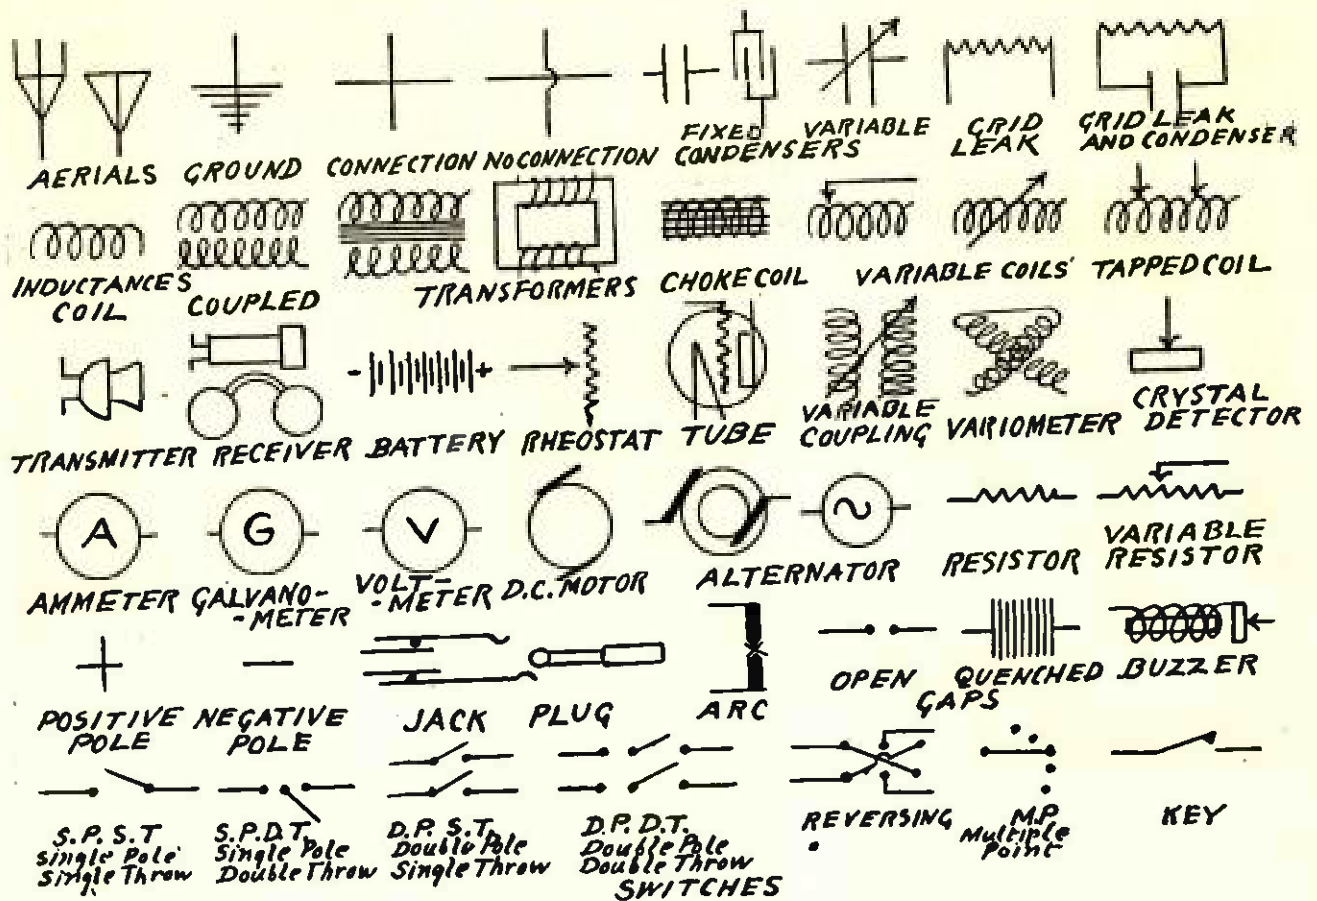 AERIALS
GROUND
CONNECTION
NO CONNECTION
FIXED
CONDENSERS
VARIABLE
GRID
LEAK
GRID LEAK
AND CONDENSER
INDUCTANCES
COIL
COUPLED
TRANSFORMERS
CHOKE COIL
VARIABLE COILS
TAPPED COIL
TRANSMITTER
RECEIVER
- +
BATTERY
RHEOSTAT
TUBE
VARIABLE
COUPLING
VARIOMETER
CRYSTAL
DETECTOR
A
AMMETER
G
GALVANO-
-METER
V
VOLT-
-METER
D.C. MOTOR
ALTERNATOR
RESISTOR
VARIABLE
RESISTOR
+
POSITIVE
POLE
-
NEGATIVE
POLE
JACK
PLUG
ARC
OPEN
QUENCHED
GAPS
BUZZER
S.P.S.T
Single Pole
Single Throw
S.P.D.T.
Single Pole
Double Throw
D.P.S.T.
Double Pole
Single Throw
D.P.D.T.
Double Pole
Double Throw
SWITCHES
REVERSING
M.P.
Multiple
Point
KEY